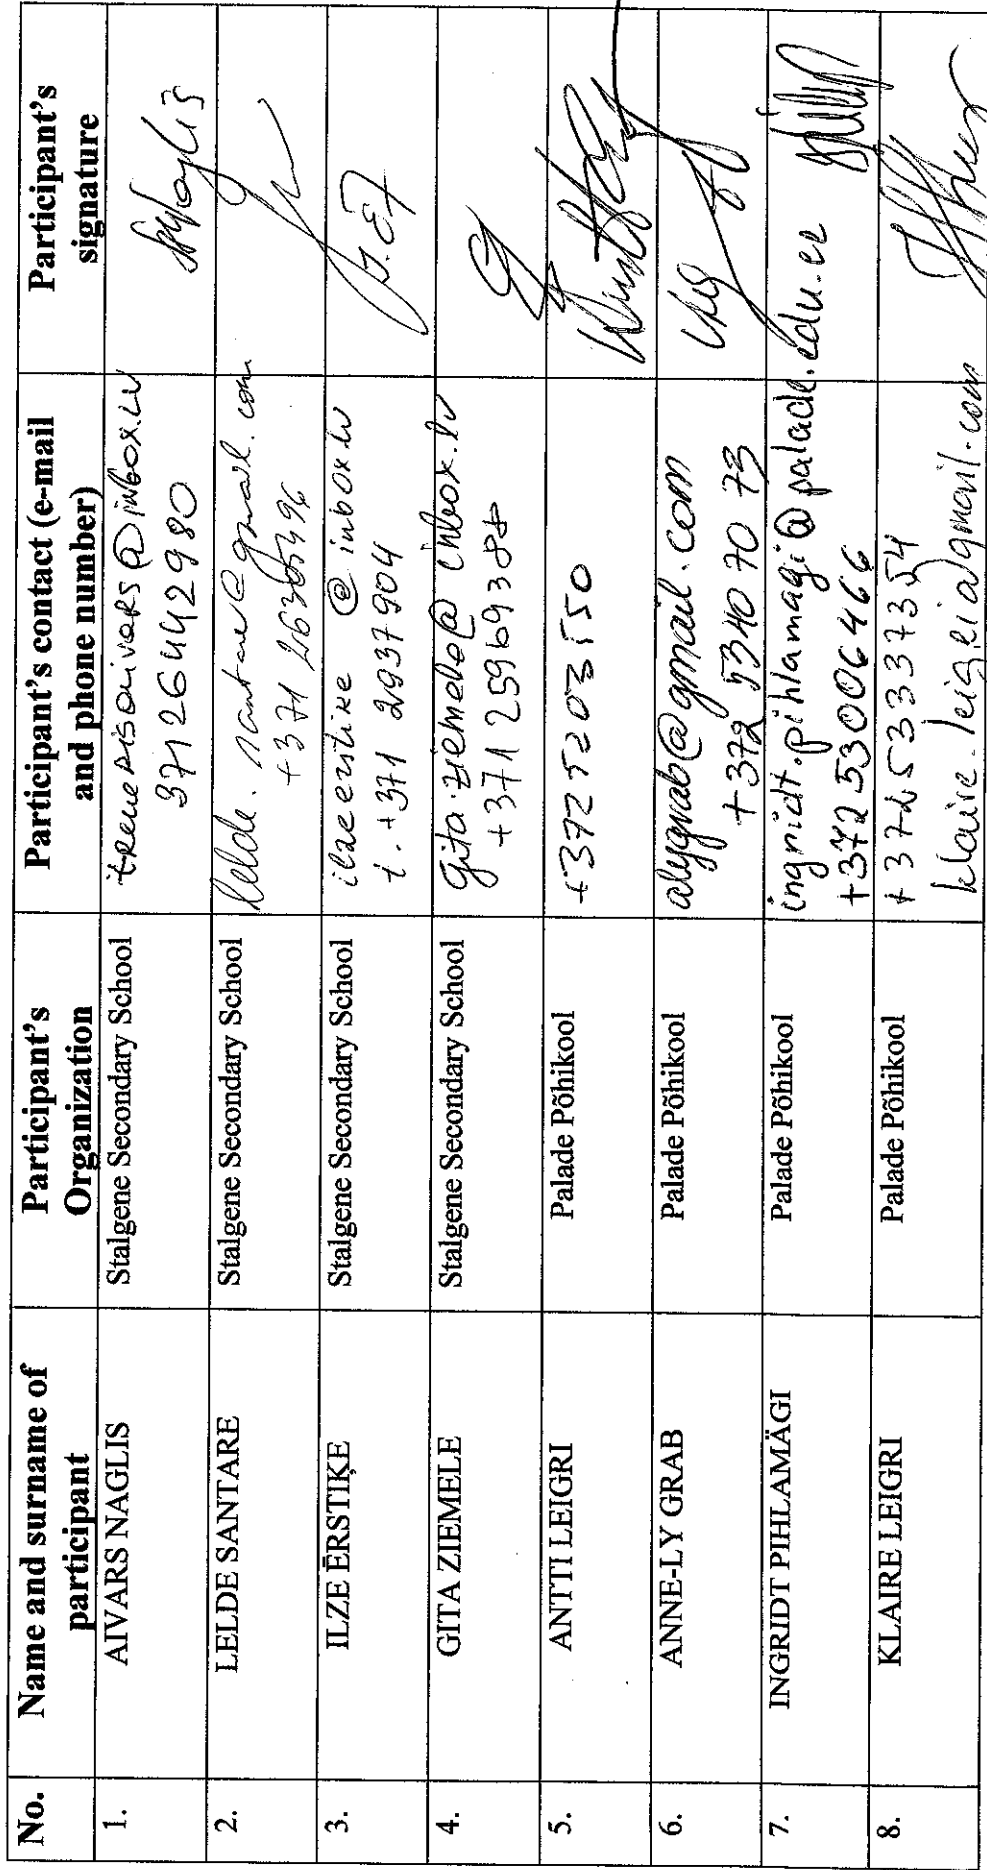 No.
Name and surname of
participant
Participant's
Organization
Participant's contact (e-mail
and phone number)
Participant's
signature
1.
AIVARS NAGLIS
Stalgene Secondary School
37126442980
2.
LELDE SANTARE
Stalgene Secondary School
lelde.santare@gmail.com
+371
3.
ILZE ĒRSTIĶE
Stalgene Secondary School
ilzeerstike @ inbox.lv
t. +371 2937904
4.
GITA ZIEMELE
Stalgene Secondary School
gita.ziemele@inbox.lv
+371
5.
ANTTI LEIGRI
Palade Põhikool
+3725203550
6.
ANNE-LY GRAB
Palade Põhikool
alygrab@gmail.com
+372 5340 70 73
7.
INGRIDT PIHLAMÄGI
Palade Põhikool
ingridt.pihlamagi@palade.edu.ee
+372 53006466
8.
KLAIRE LEIGRI
Palade Põhikool
+37253337354
klaire.leigri@gmail.com